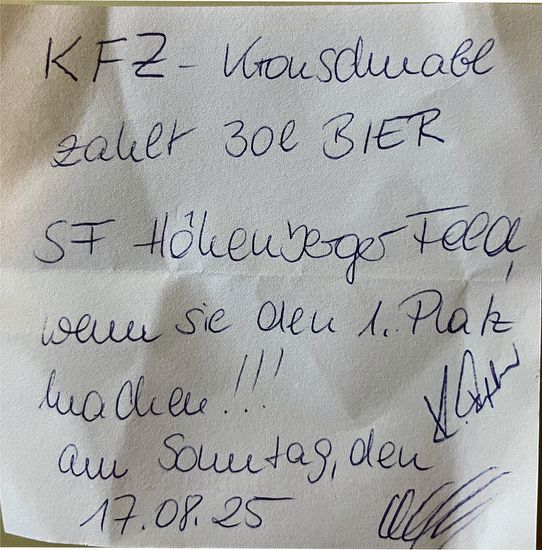 KFZ - Kronschnabl
zahlt 30l BIER
SF Höhenberger Feld,
wenn sie den 1. Platz
machen!!!
am Sonntag, den
17.08.25